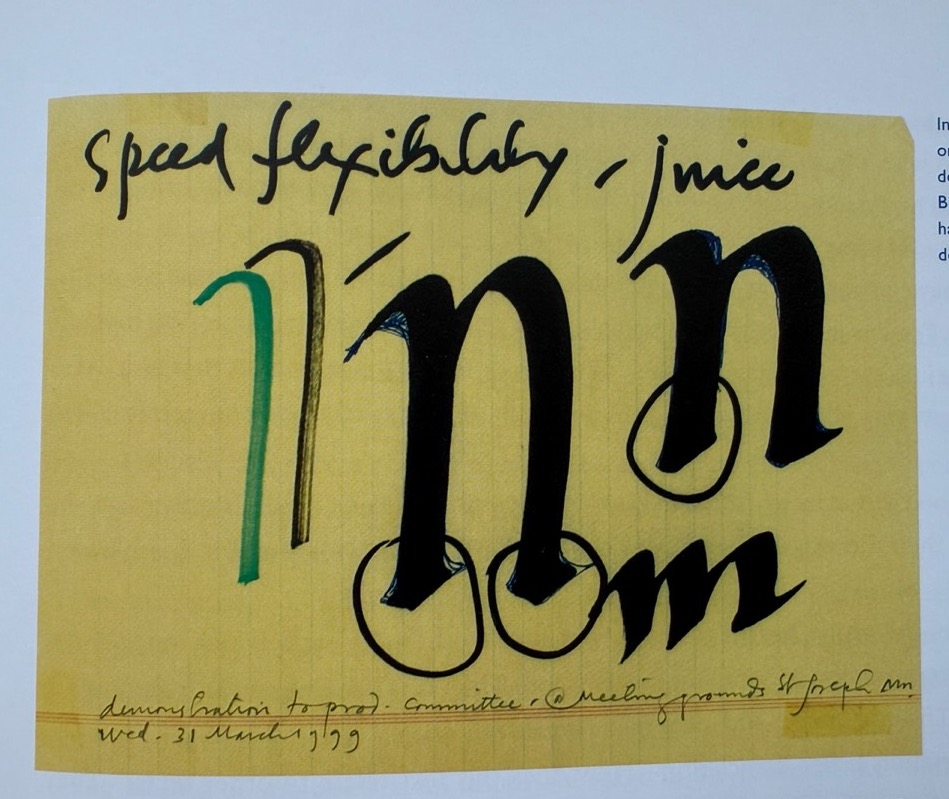 speed flexibility - juice
n n
m
demonstration to prod. Committee. @ Meeting grounds St Joseph MN.
Wed. 31 March 1999
In
or
de
B
ha
de